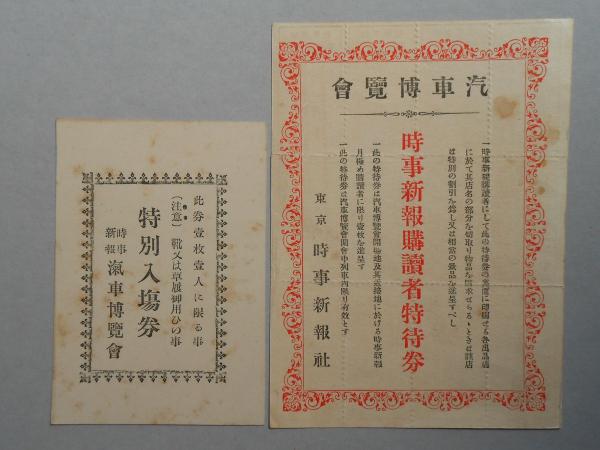 此券壹枚壹人に限る事
(注意) 靴又は草履御用ひの事
特別入塲券
時事新報 滊車博覽會
會覽博車汽
一時事新報購讀者にして此の特待券の裏面に印刷せる各出品店
に於て其店名の部分を切取り物品を購求せらるゝときは該店
は特別の割引を爲し又は相當の景品を進呈すべし
時事新報購讀者特待券
一此の特待券は汽車博覽會開催地及其近接地に於ける時事新報
月極め購讀者に限り壹枚を進呈す
一此の特待券は汽車博覽會開會中列車內限り有效とす
東京 時事新報社